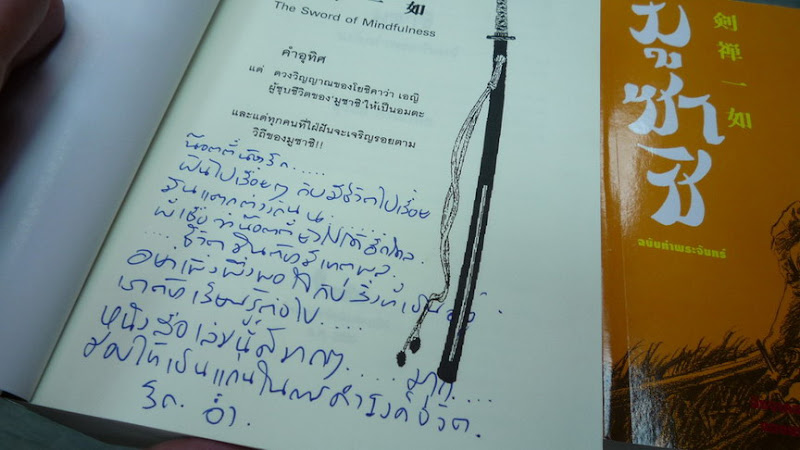 一 如
The Sword of Mindfulness
คำอุทิศ
แด่ ดวงวิญญาณของโยชิคาว่า เอญิ
ผู้ชุบชีวิตของ'มูซาชิ'ให้เป็นอมตะ
และแด่ทุกคนที่ใฝ่ฝันจะเจริญรอยตาม
วิถีของมูซาชิ!!
น๊อตตี้น่ารัก.....
ฝันไปเรื่อยๆ กับมีชีวิตไปเรื่อย
มันแตกต่างกันนะ......
พี่เชื่อว่าน๊อตตี้ยังไปได้อีกไกล
....ชีวิตมันต้องมีเหตุผล....
อย่าเพิ่งพึงพอใจกับสิ่งที่เป็นอยู่
เราต้องเรียนรู้ต่อไป.....
หนังสือเล่มนี้ดีมากๆ..... มาก....
ขอให้เป็นแกนในการดำรงค์ชีวิต.
รัก.
剣禅一如
มูซาชิ
ฉบับท่าพระจันทร์